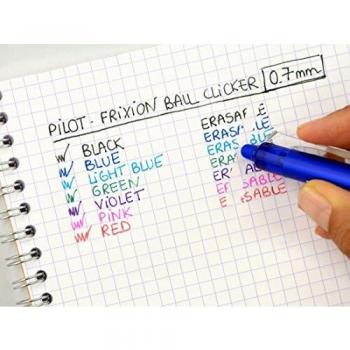 PILOT - FRIXION BALL CLICKER 0.7mm
BLACK
BLUE
LIGHT BLUE
GREEN
VIOLET
PINK
RED
ERASABLE
ERASABLE
ERASABLE
ERA
ER ABLE
ER SABLE
E SABLE